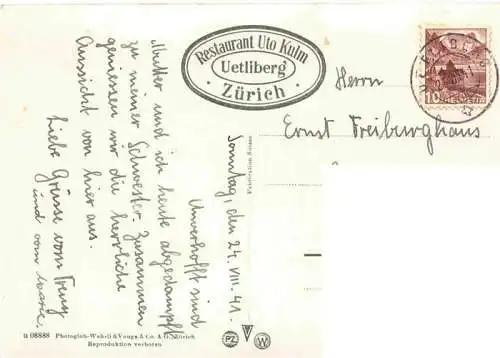 Restaurant Uto Kulm
Uetliberg
Zürich
Herrn
Ernst Freiburghaus
Sonntag, den 24. VIII. 41.
Unverhofft sind
Mutter und ich heute abgedampft
zu meiner Schwester. Zusammen
geniessen wir die herrliche
Aussicht von hier aus.
Liebe Grüsse vom Freny
und vom
10 HELVETIA
ü 08888 Photoglob-Wehrli & Vouga & Co. A.G. Zürich
Reproduktion verboten
PZ V W